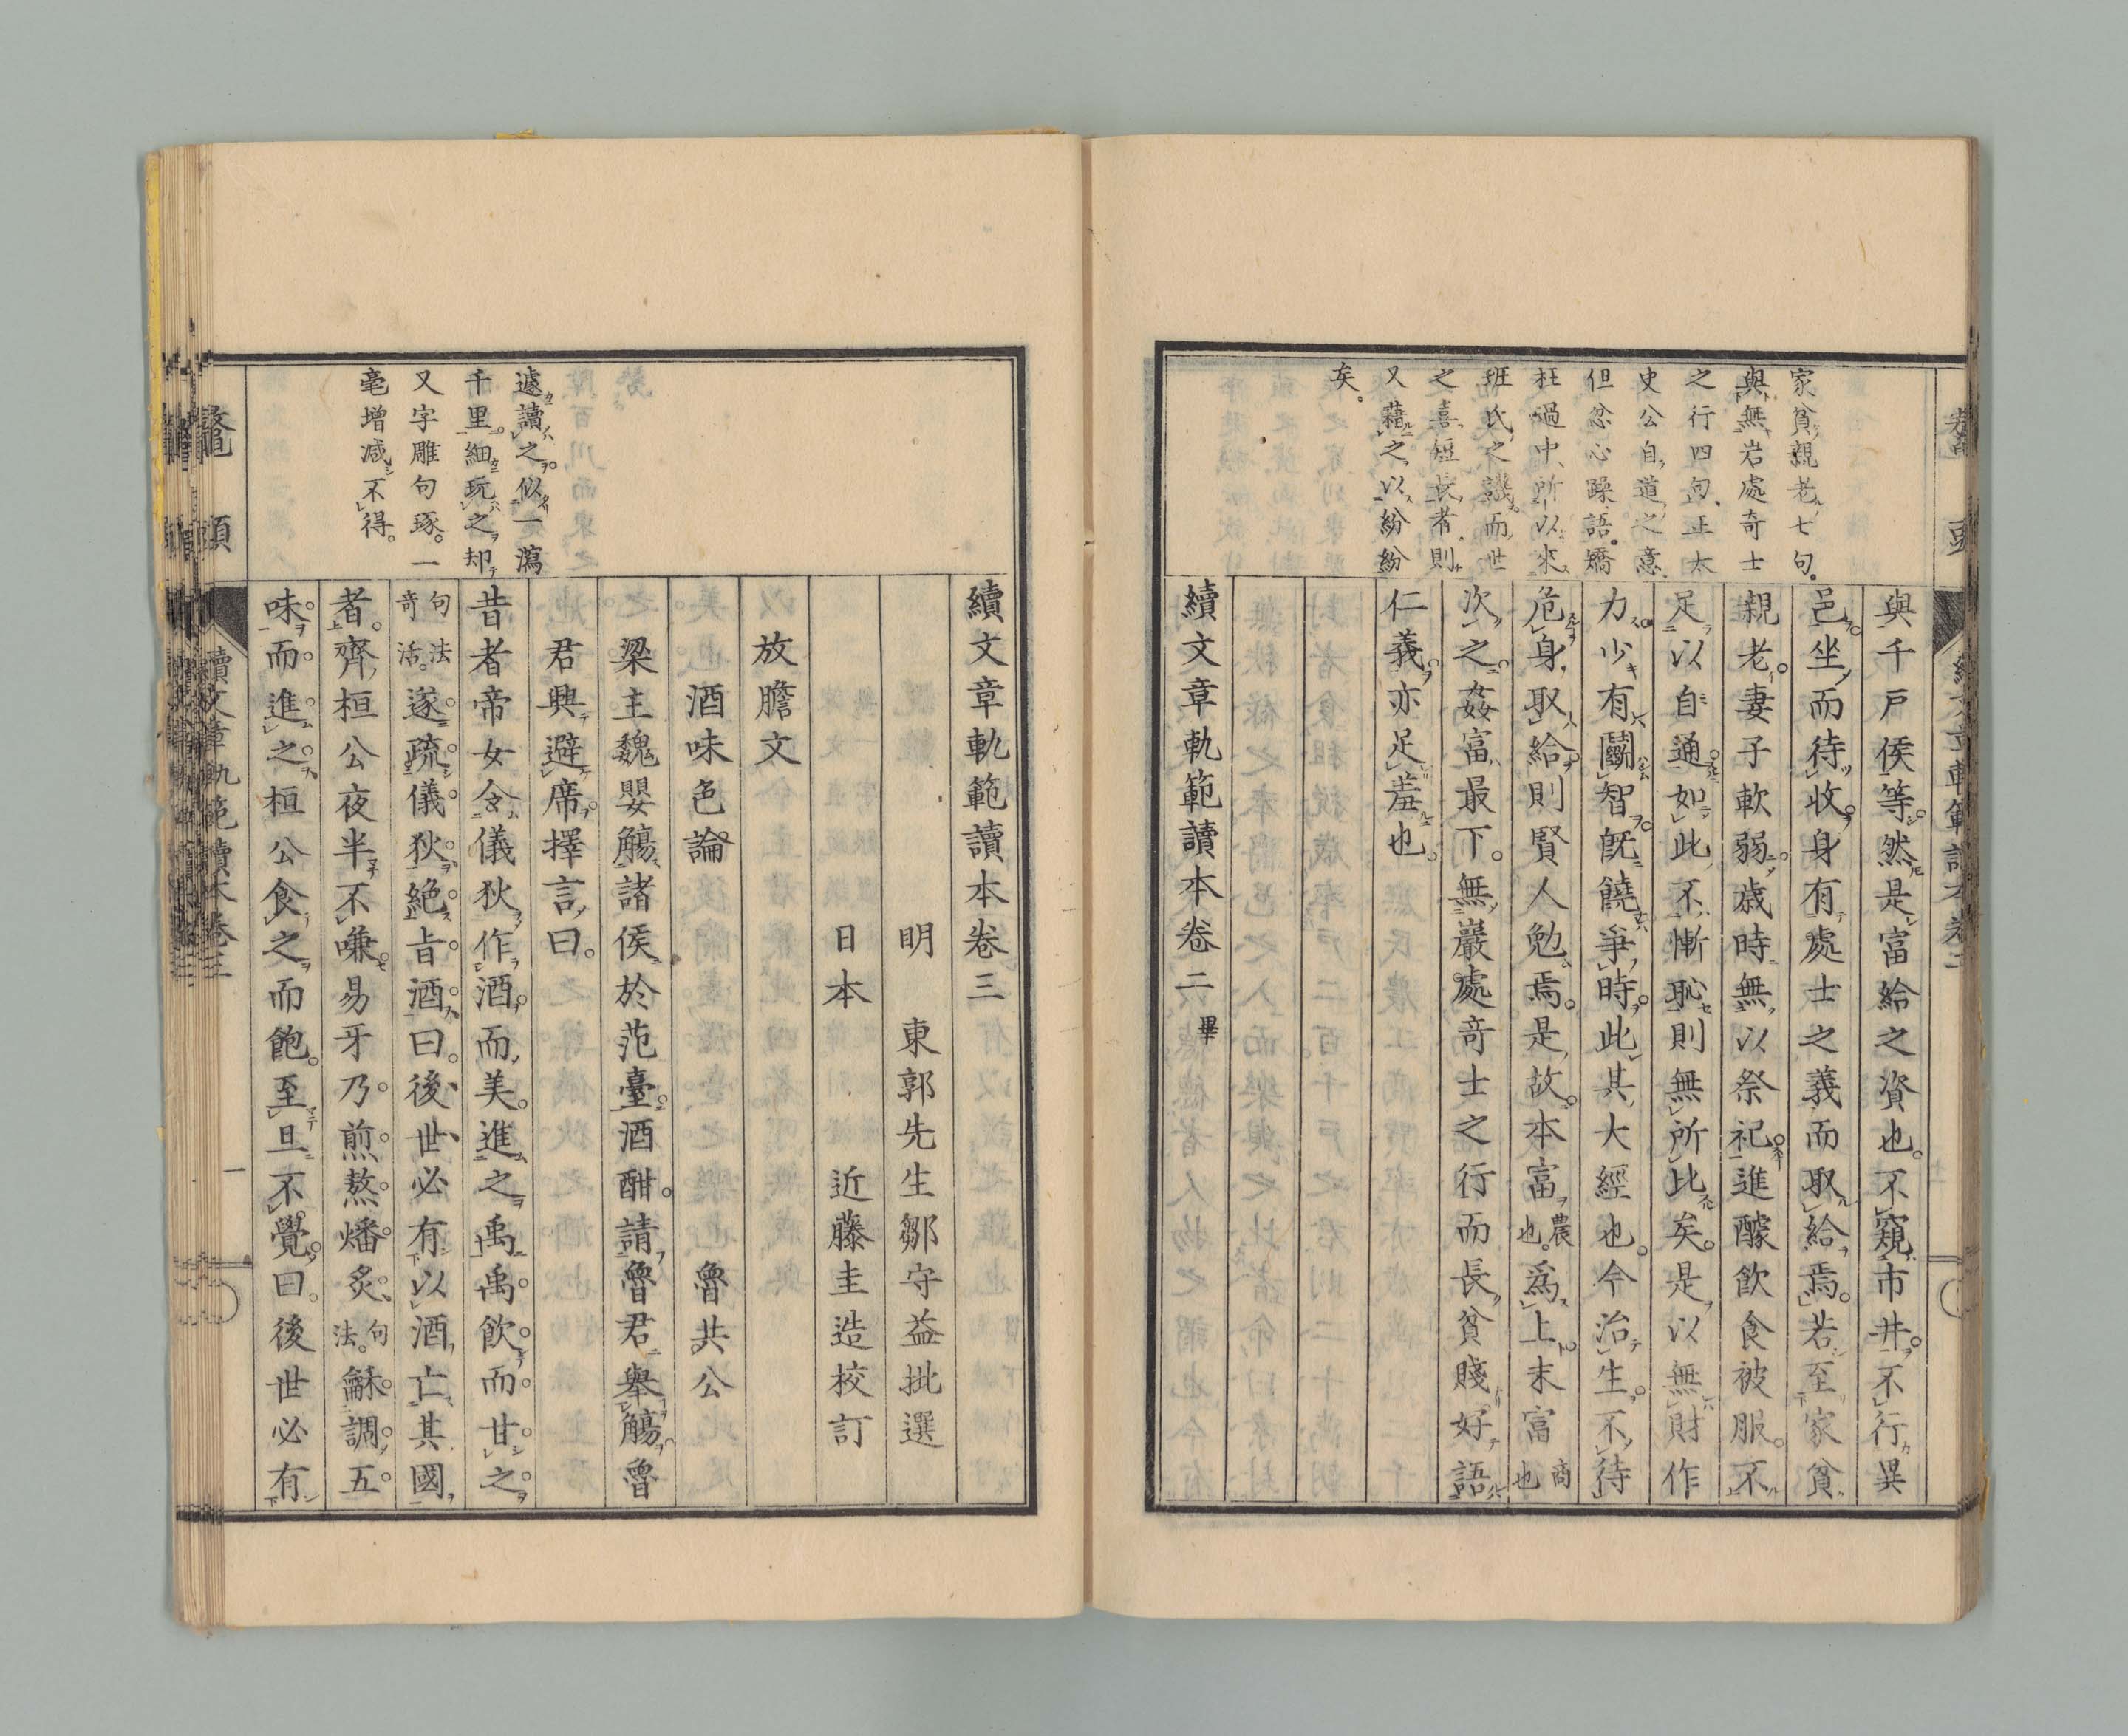 家貧親老七句。
與無岩處奇士
之行四句、正太
史公自道之意、
但忿心躁語。矯
枉過中、所以來
班氏之譏。而世
之喜短長者、則
又藉之以紛紛
矣。
與千戸侯等。然是富給之資也。不窺市井。不行異
邑。坐而待收。身有處士之義而取給焉。若至家貧
親老。妻子軟弱。歳時無以祭祀。進醵飲食被服。不
足以自通。如此不慚恥。則無所比矣。是以無財作
力。少有鬭智。既饒爭時。此其大經也。今治生。不待
危身取給。則賢人勉焉。是故本富農也。爲上。末富商也
次之。姦富最下。無巖處奇士之行而長貧賤好語
仁義。亦足羞也。
續文章軌範讀本卷二畢
遽讀之。似一瀉
千里。細玩之、却
又字雕句琢。一
毫増減不得。
續文章軌範讀本卷三
明　東郭先生鄒守益批選
日本　近藤圭造校訂
放膽文
酒味色論　魯共公
梁主魏嬰觴諸侯於范臺。酒酣。請魯君舉觴。魯
君興避席。擇言曰。
昔者帝女令儀狄作酒。而美。進之禹。禹飲而甘之。
句法奇活。遂疏儀狄。絶旨酒。曰。後世必有以酒亡其國
者。齊桓公夜半不嗛。易牙乃煎熬燔炙。句法。龢調五
味。而進之。桓公食之而飽。至旦不覺。曰。後世必有
鼇頭
續文章軌範讀本卷三
一